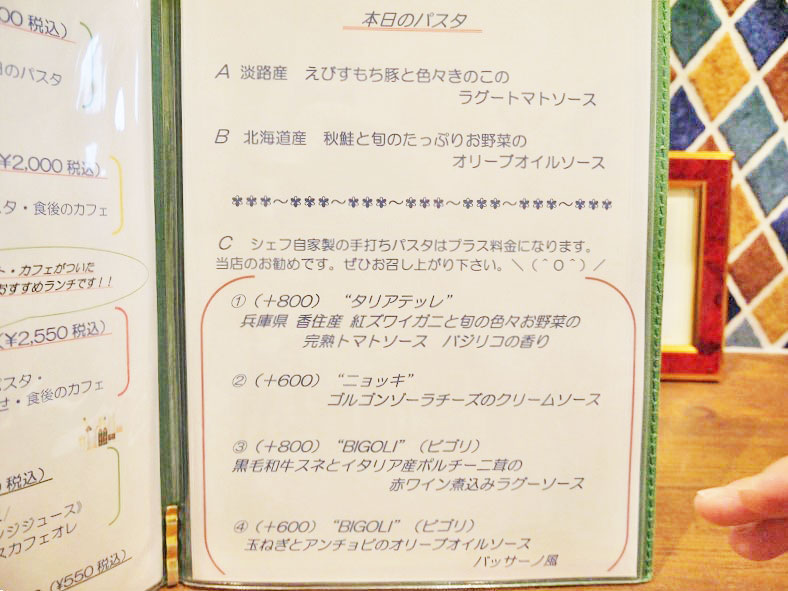 00 税込)
日のパスタ
(¥2,000 税込)
スタ・食後のカフェ
ト・カフェがついた
おすすめランチです!!
(¥2,550 税込)
パスタ・
せ・食後のカフェ
税込)
ンジジュース》
スカフェオレ
(¥550 税込)
本日のパスタ
A 淡路産 えびすもち豚と色々きのこの
ラグートマトソース
B 北海道産 秋鮭と旬のたっぷりお野菜の
オリーブオイルソース
✾✾✾～✾✾✾～✾✾✾～✾✾✾～✾✾✾～✾✾✾～✾✾✾
C シェフ自家製の手打ちパスタはプラス料金になります。
当店のお勧めです。ぜひお召し上がり下さい。＼（＾Ｏ＾）／
①（+800） “タリアテッレ”
兵庫県 香住産 紅ズワイガニと旬の色々お野菜の
完熟トマトソース バジリコの香り
②（+600） “ニョッキ”
ゴルゴンゾーラチーズのクリームソース
③（+800） “BIGOLI”（ビゴリ）
黒毛和牛スネとイタリア産ポルチーニ茸の
赤ワイン煮込みラグーソース
④（+600） “BIGOLI”（ビゴリ）
玉ねぎとアンチョビのオリーブオイルソース
バッサーノ風